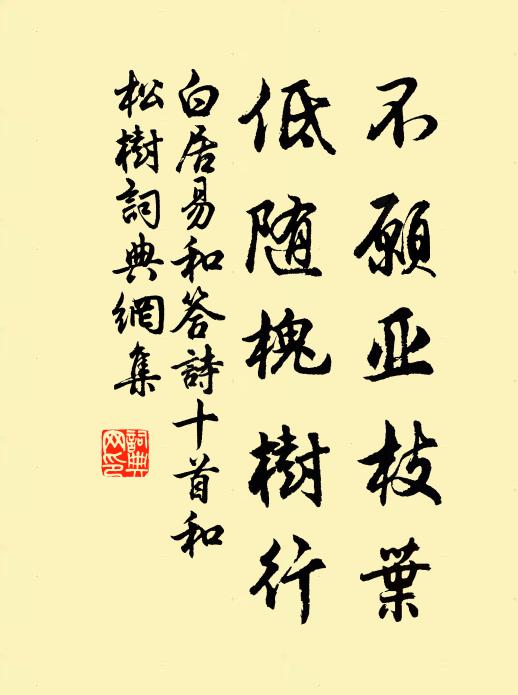 不願亚枝葉
低随槐樹行
白居易和答詩十首和
松樹詞典網集
詞典
网印